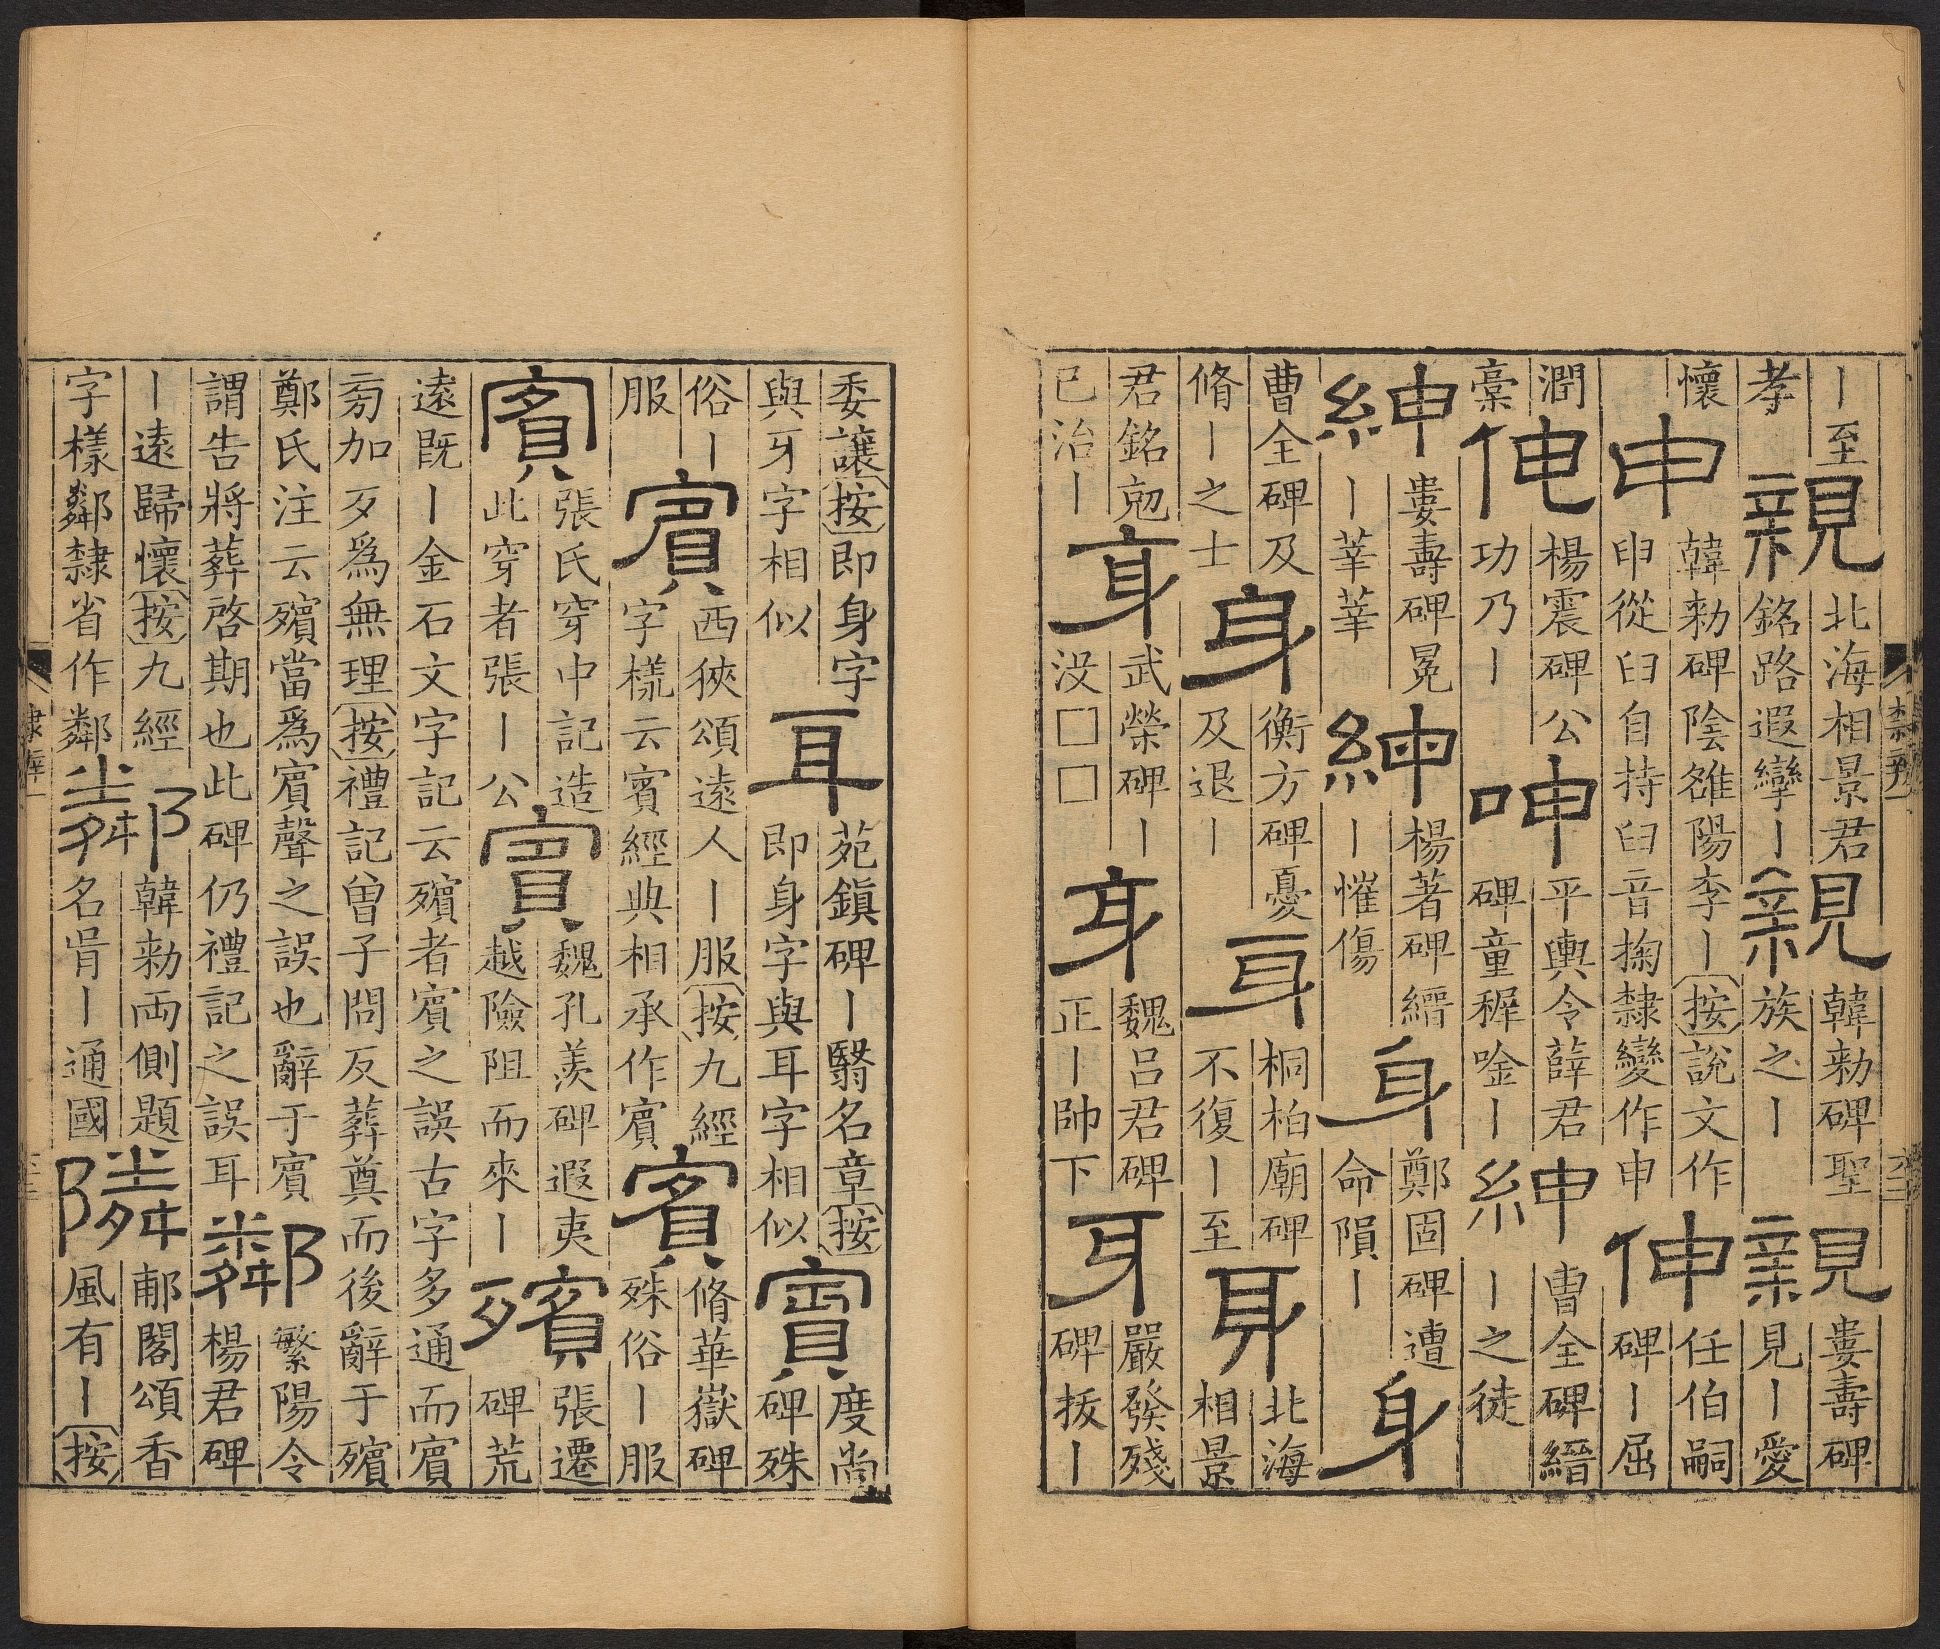 ｜至孝親北海相景君銘路遐攣｜親韓勑碑聖族之｜親婁壽碑見｜愛
懷申韓勑碑陰雒陽李｜按說文作𦥔從臼自持臼音掬隸變作申伸任伯嗣碑｜屈
潤槀伸楊震碑公功乃｜呻平輿令薛君碑童穉唫｜紳曹全碑縉｜之徒
紳婁壽碑冕｜莘莘紳楊著碑縉｜慛傷身鄭固碑遭命隕｜身
曹全碑及脩｜之士身衡方碑憂及退｜身桐柏廟碑不復｜至身北海相景
君銘剋已治｜身武榮碑｜没□□身魏呂君碑正｜帥下身嚴發殘碑拔｜
隸辨
委讓按即身字與牙字相似耳苑鎮碑｜翳名章按即身字與耳字相似賓度尚碑殊
俗｜服賓西狹頌遠人｜服按九經字樣云賓經典相承作賓賓脩華嶽碑殊俗｜服
賓張氏穿中記造此穿者張｜公賓魏孔羨碑遐夷越險阻而來｜殯張遷碑荒
遠既｜金石文字記云殯者賓之誤古字多通而賓旁加歹爲無理按禮記曾子問反葬奠而後辭于殯
鄭氏注云殯當爲賓聲之誤也辭于賓謂告將葬啓期也此碑仍禮記之誤耳鄰繁陽令楊君碑
｜遠歸懷按九經字樣鄰隸省作鄰鄰韓勑兩側題名｜通國隣郙閣頌香風有｜按
隸辨